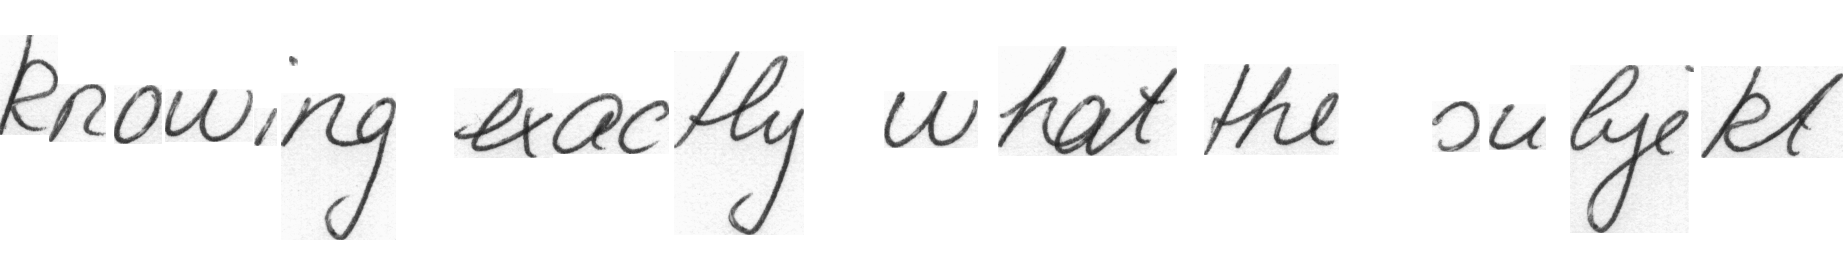 knowing exactly what the subjekt